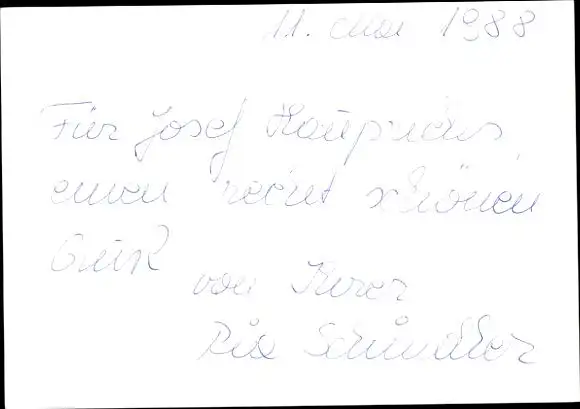 11. Mai 1988
Für Josef
einen recht schönen
Gruß
von Ihrer
Ria Schindler